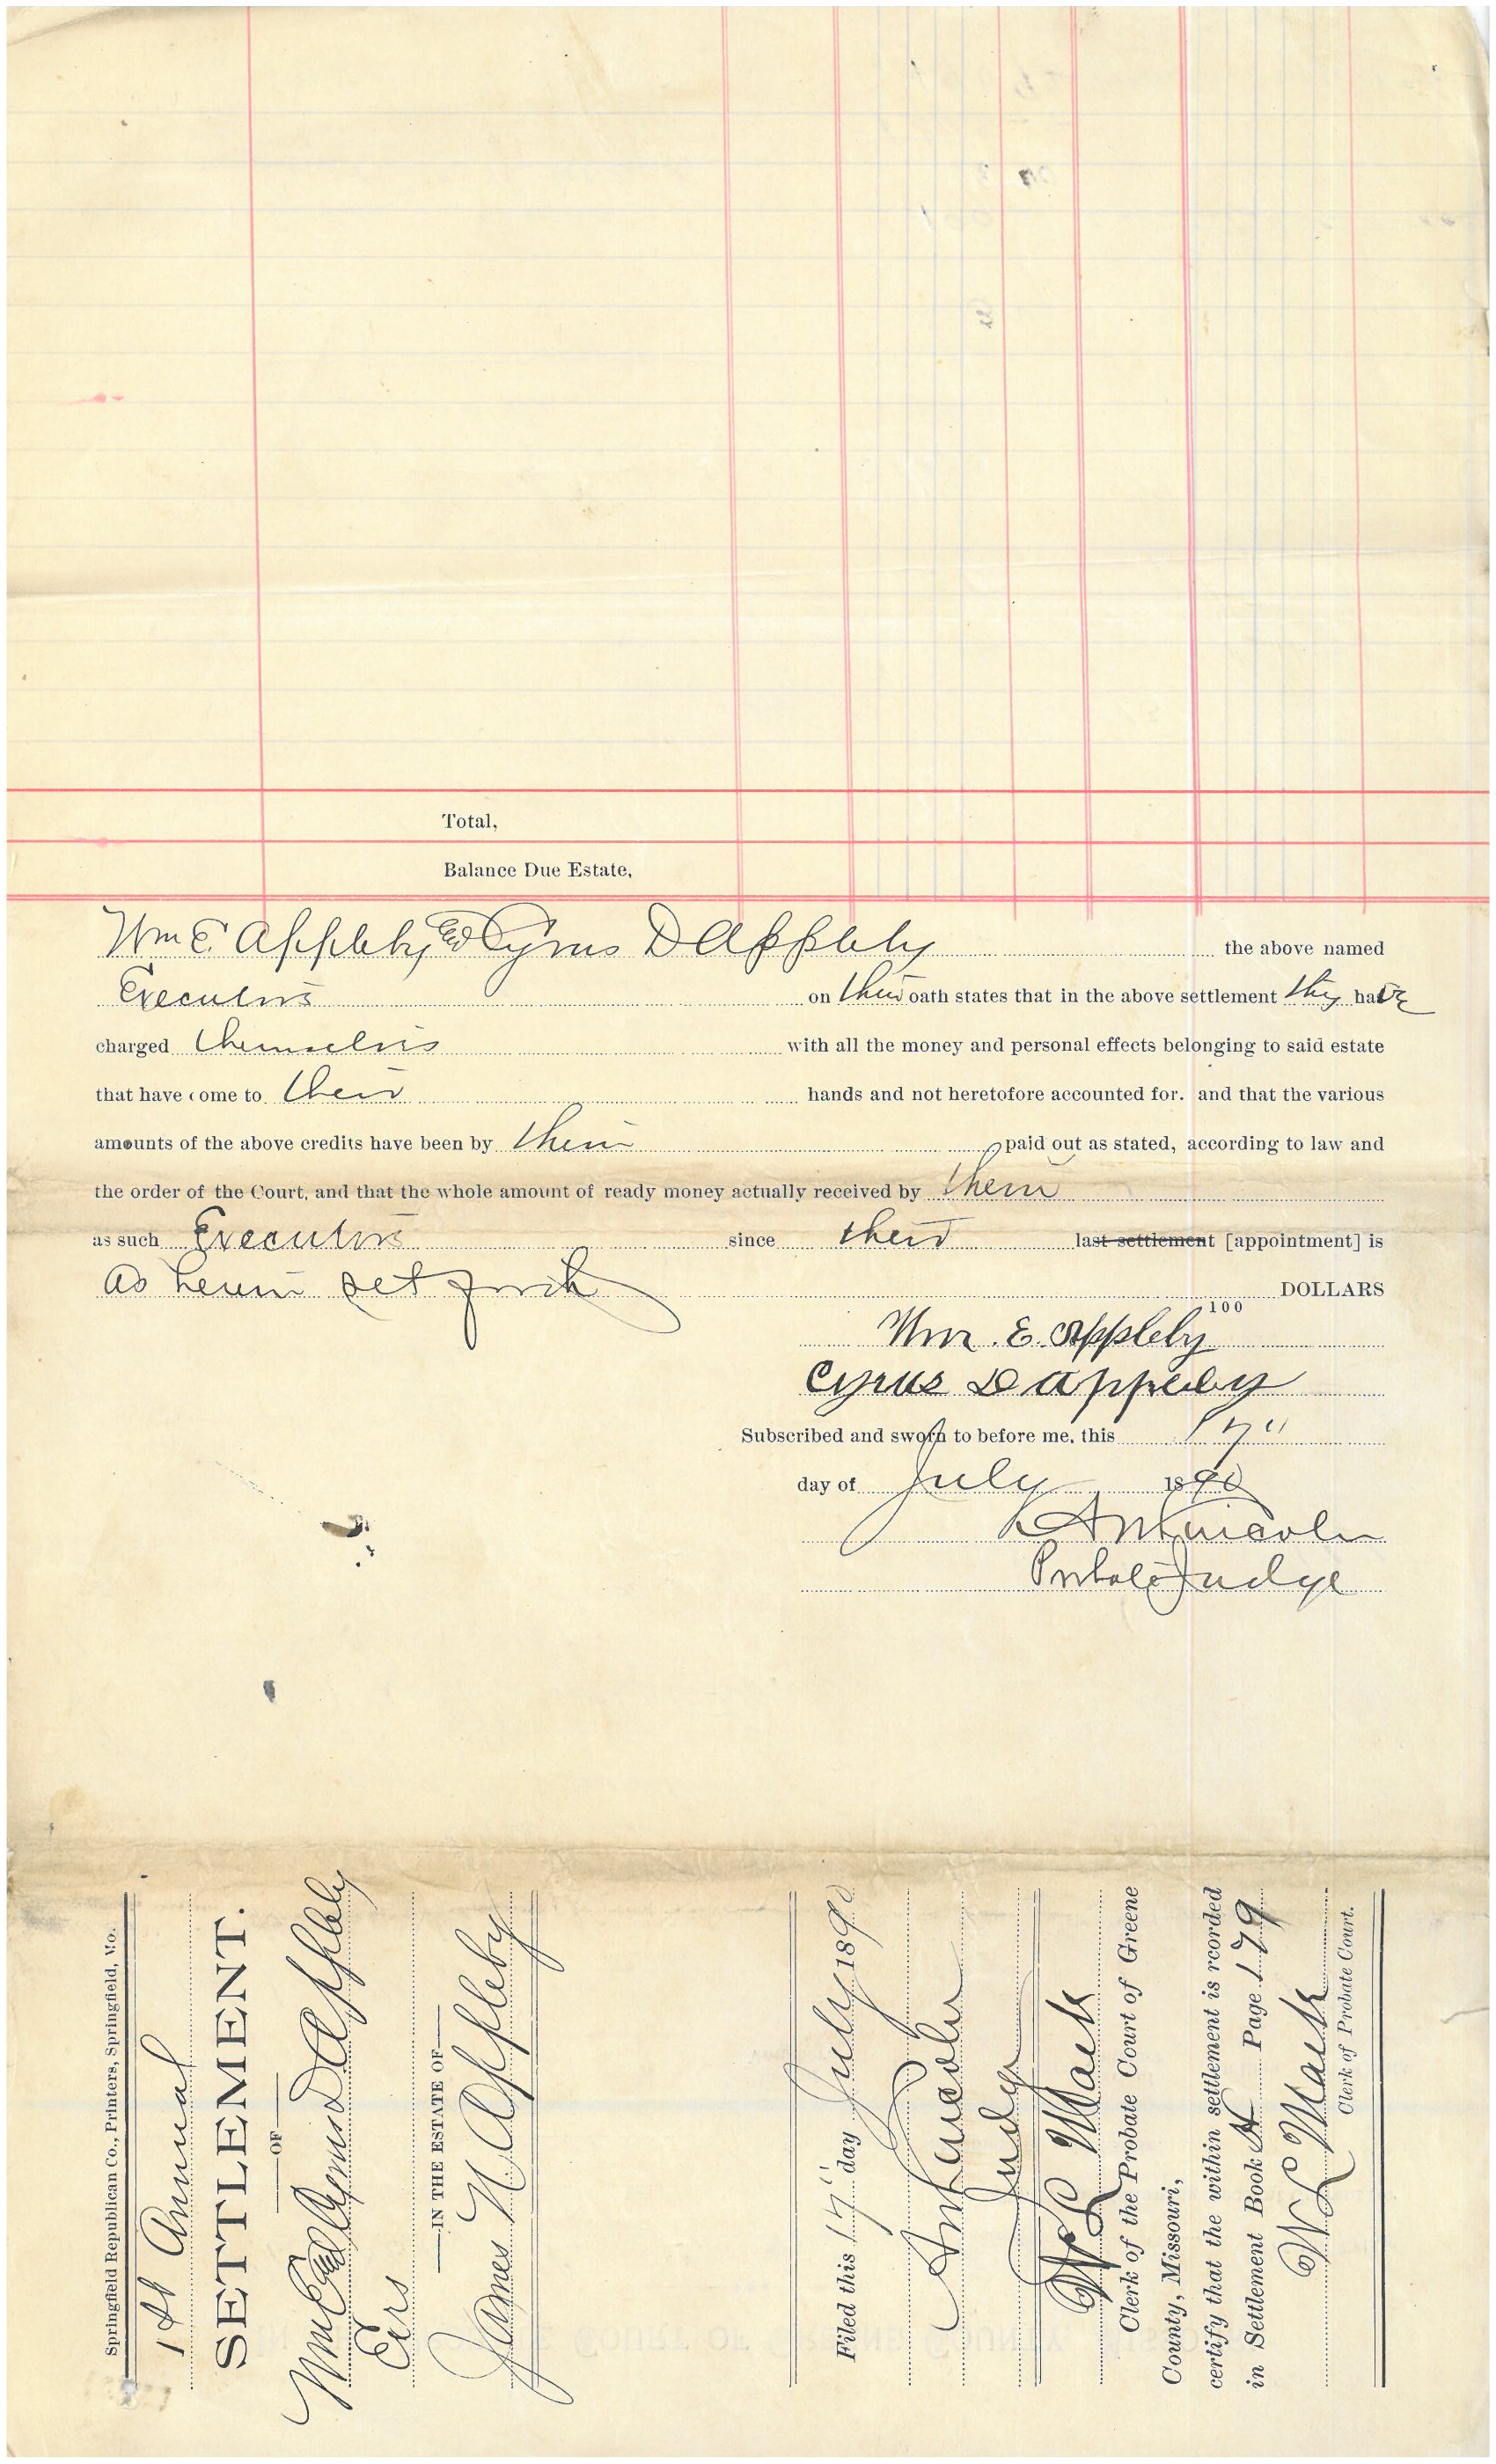 Total,
Balance Due Estate,
Wm E Appleby and Cyrus D Appleby the above named
Executors on their oath states that in the above settlement they have
charged themselves with all the money and personal effects belonging to said estate
that have come to their hands and not heretofore accounted for. and that the various
amounts of the above credits have been by them paid out as stated, according to law and
the order of the Court, and that the whole amount of ready money actually received by them
as such Executors since their last settlement [appointment] is
as herein set forth DOLLARS
100
Wm. E. Appleby
Cyrus D Appleby
Subscribed and sworn to before me, this 17"
day of July 1890
Lincoln
Probate Judge
Springfield Republican Co., Printers, Springfield, Mo.
1st Annual
SETTLEMENT.
OF
Wm E and Cyrus D Appleby
Exrs
IN THE ESTATE OF
James N Appleby
Filed this 17" day July 1890
Lincoln
Judge
W L Mack
Clerk of the Probate Court of Greene
County, Missouri,
certify that the within settlement is rcorded
in Settlement Book Page 179
W L Mack
Clerk of Probate Court.